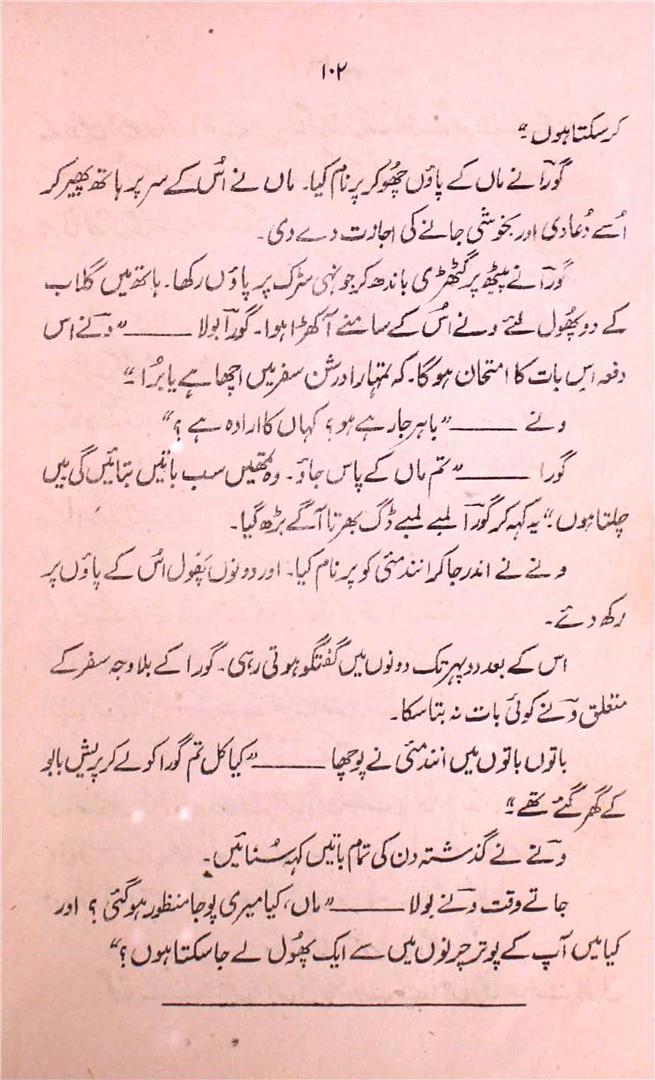 ۱۰۲
کرسکتا ہوں۔“
گورؔا نے ماں کے پاؤں چھُو کر پرنام کیا۔ ماں نے اُس کے سر پر ہاتھ پھیر کر
اُسے دُعا دی اور بخوشی جانے کی اجازت دے دی۔
گورؔا نے پیٹھ پر گٹھڑی باندھ کر جونہی سڑک پر پاؤں رکھا۔ ہاتھ میں گلاب
کے دو پھُول لئے ونے اُس کے سامنے آ کھڑا ہوا۔ گورؔا بولا ——— ”ونے اس
دفعہ اِس بات کا امتحان ہو گا۔ کہ تمہارا درشن سفر میں اچھا ہے یا بُرا۔“
ونے ——— ”باہر جا رہے ہو؟ کہاں کا ارادہ ہے؟“
گورا ——— ”تم ماں کے پاس جاؤ۔ وہ تمھیں سب باتیں بتائیں گی میں
چلتا ہوں۔“ یہ کہہ کر گورؔا لمبے لمبے ڈگ بھرتا آگے بڑھ گیا۔
ونے نے اندر جا کر انند مئی کو پرنام کیا۔ اور دونوں پھُول اُس کے پاؤں پر
رکھ دئے۔
اس کے بعد دوپہر تک دونوں میں گفتگو ہوتی رہی۔ گورا کے بلاوجہ سفر کے
متعلق ونے کوئی بات نہ بتا سکا۔
باتوں باتوں میں انند مئی نے پوچھا ——— ”کیا کل تم گورا کو لے کر پریش بابو
کے گھر گئے تھے۔“
ونے نے گذشتہ دن کی تمام باتیں کہہ سُنائیں۔
جاتے وقت ونے بولا ——— ”ماں، کیا میری پوجا منظور ہو گئی؟ اور
کیا میں آپ کے پوتر چرنوں میں سے ایک پھُول لے جا سکتا ہوں؟“